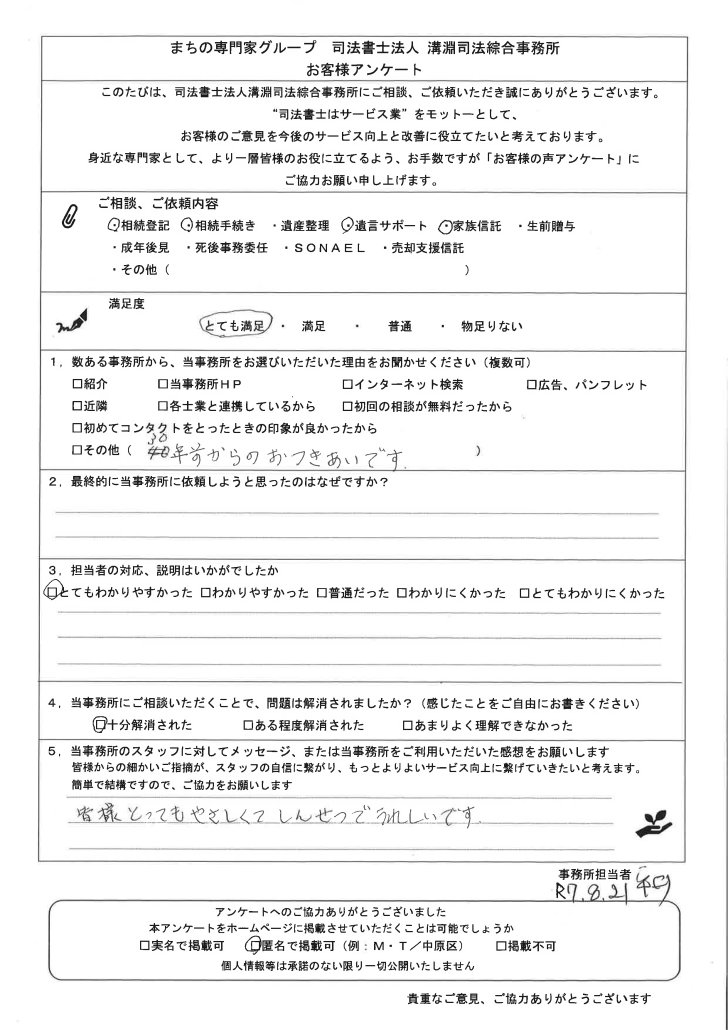 まちの専門家グループ　司法書士法人 溝淵司法綜合事務所
お客様アンケート
このたびは、司法書士法人溝淵司法綜合事務所にご相談、ご依頼いただき誠にありがとうございます。
“司法書士はサービス業”をモットーとして、
お客様のご意見を今後のサービス向上と改善に役立てたいと考えております。
身近な専門家として、より一層皆様のお役に立てるよう、お手数ですが「お客様の声アンケート」に
ご協力お願い申し上げます。
ご相談、ご依頼内容
・相続登記　・相続手続き　・遺産整理　・遺言サポート　・家族信託　・生前贈与
・成年後見　・死後事務委任　・ＳＯＮＡＥＬ　・売却支援信託
・その他（　　　　　　　　　　）
満足度
とても満足　・　満足　・　普通　・　物足りない
１，数ある事務所から、当事務所をお選びいただいた理由をお聞かせください（複数可）
□紹介　□当事務所ＨＰ　□インターネット検索　□広告、パンフレット
□近隣　□各士業と連携しているから　□初回の相談が無料だったから
□初めてコンタクトをとったときの印象が良かったから
□その他（　30年前からのおつきあいです.　）
２，最終的に当事務所に依頼しようと思ったのはなぜですか？
３，担当者の対応、説明はいかがでしたか
□とてもわかりやすかった □わかりやすかった □普通だった □わかりにくかった　□とてもわかりにくかった
４，当事務所にご相談いただくことで、問題は解消されましたか？（感じたことをご自由にお書きください）
□十分解消された　□ある程度解消された　□あまりよく理解できなかった
５，当事務所のスタッフに対してメッセージ、または当事務所をご利用いただいた感想をお願いします
皆様からの細かいご指摘が、スタッフの自信に繋がり、もっとよりよいサービス向上に繋げていきたいと考えます。
簡単で結構ですので、ご協力をお願いします
皆様とってもやさしくてしんせつでうれしいです.
事務所担当者
R7.8.21
アンケートへのご協力ありがとうございました
本アンケートをホームページに掲載させていただくことは可能でしょうか
□実名で掲載可　□匿名で掲載可（例：Ｍ・Ｔ／中原区）　□掲載不可
個人情報等は承諾のない限り一切公開いたしません
貴重なご意見、ご協力ありがとうございます